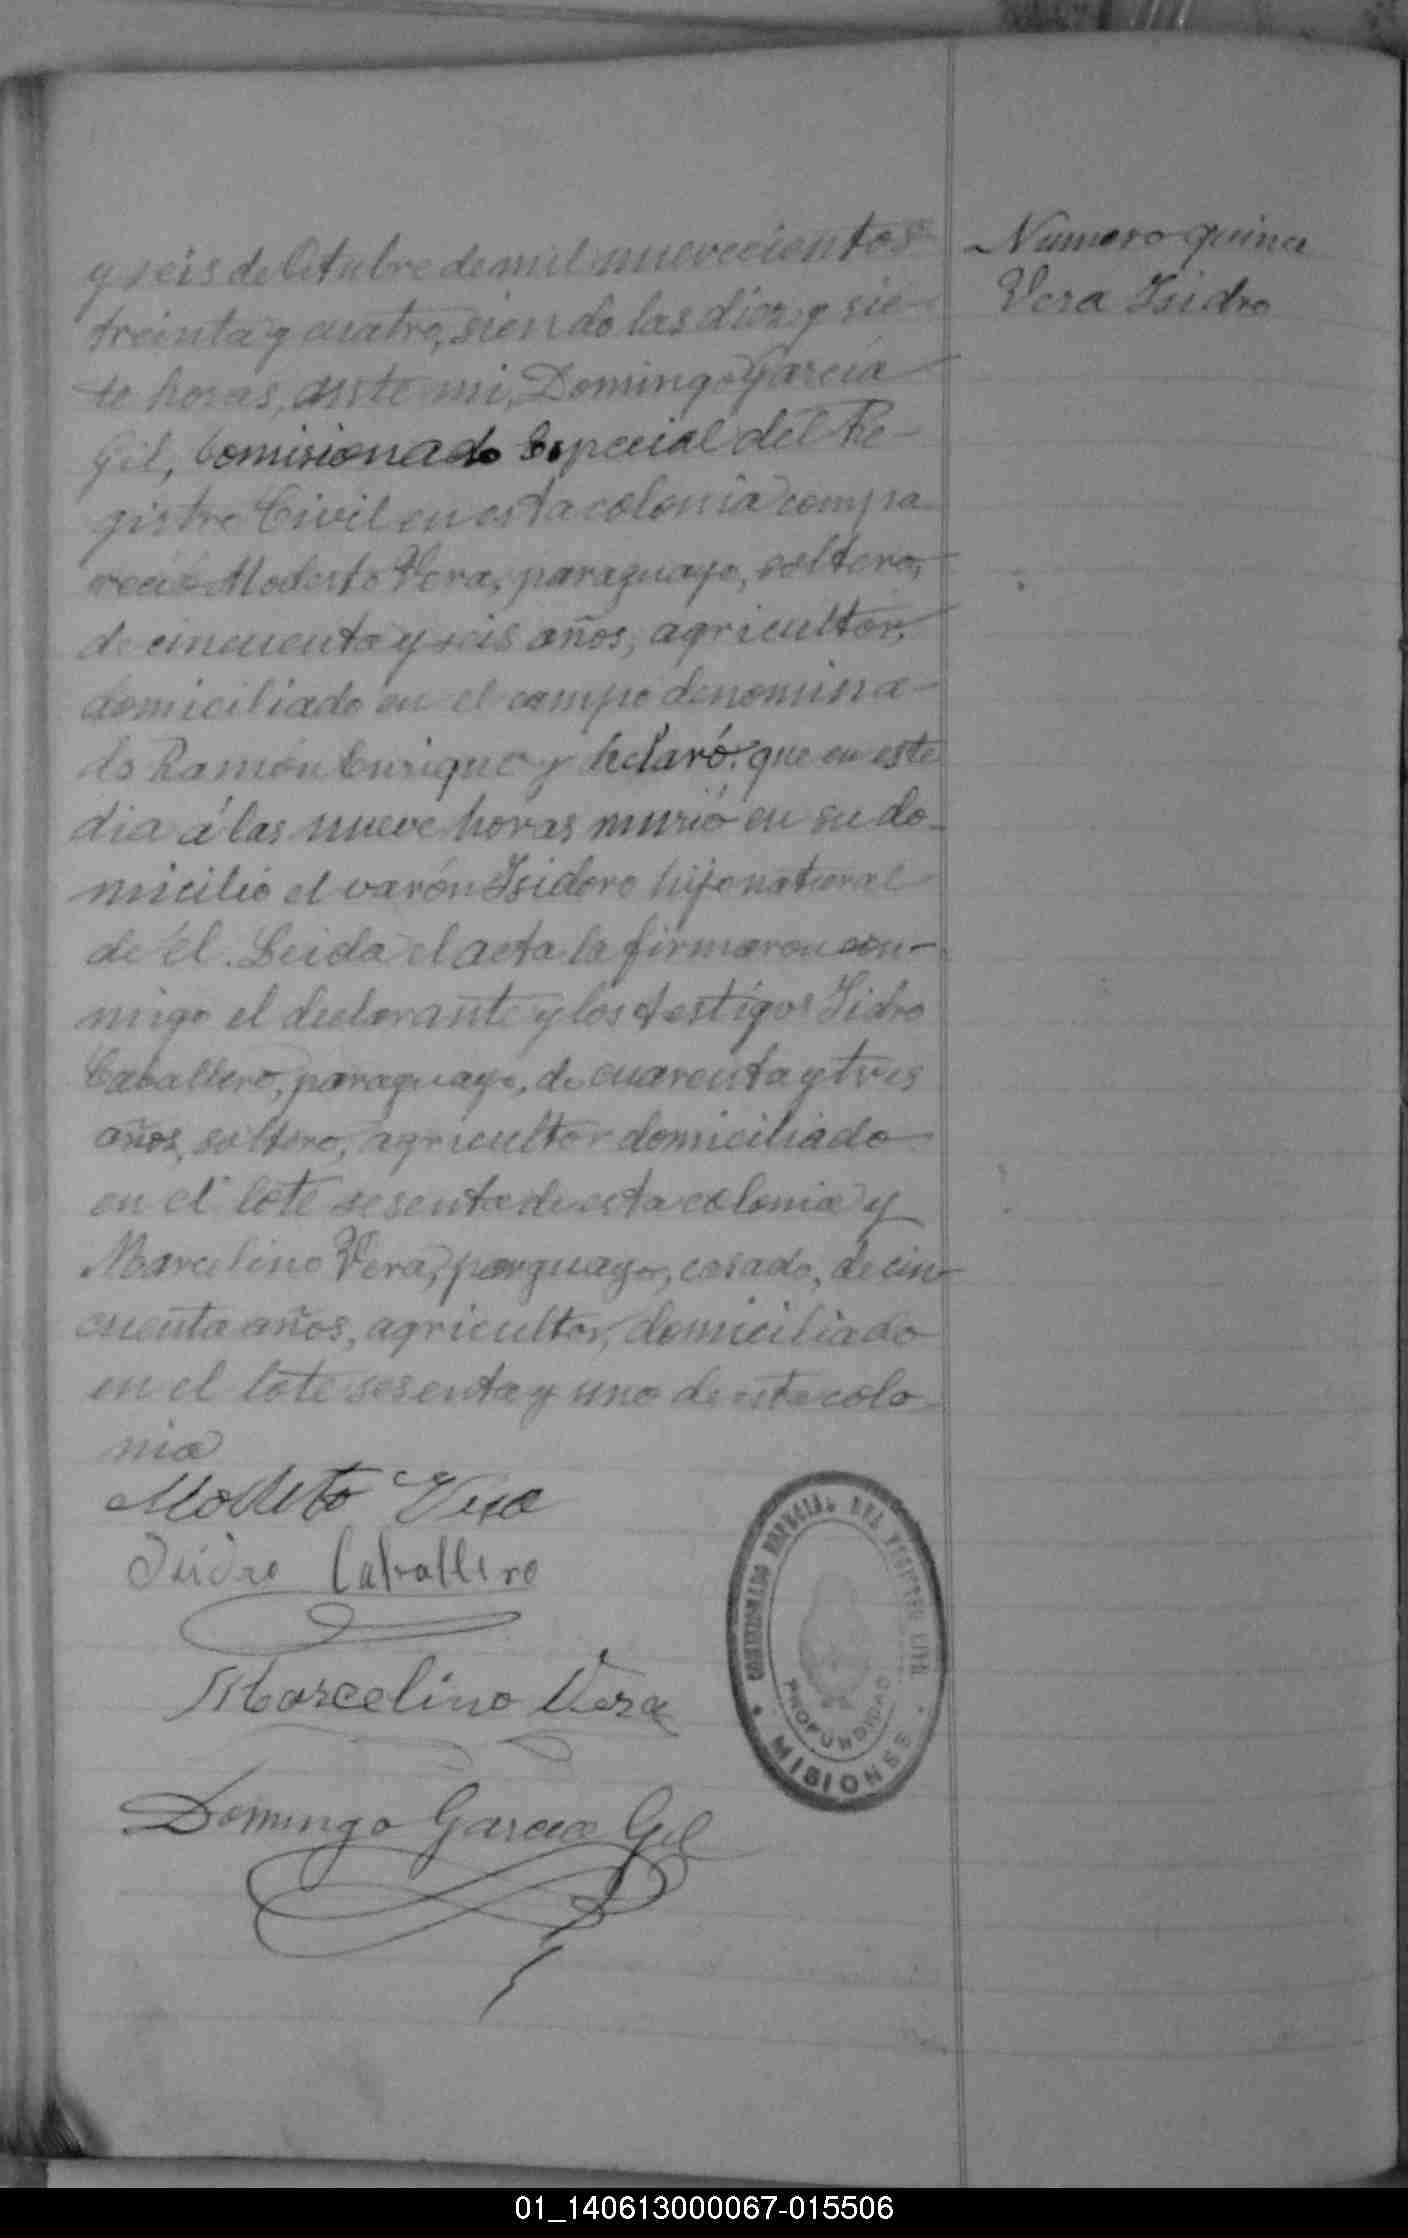 y seis de Octubre de mil nuevecientos
treinta y cuatro, siendo las diez y sie-
te horas, ante mi, Domingo García
Gil, Comisionado Especial del Re-
gistro Civil en esta colonia compa
reció Modesto Vera, paraguayo, soltero,
de cincuenta y seis años, agricultor,
domiciliado en el campo denomina-
do Ramón Enrique y declaró: que en este
dia á las nueve horas murió en su do-
micilio el varón Isidoro hijo natural
de él. Leida el acta la firmaron con-
migo el declarante y los testigos Isidro
Caballero, paraguayo, de cuarenta y tres
años, soltero, agricultor domiciliado
en el lote sesenta de esta colonia y
Marcelino Vera, parguayo, casado, de cin
cuenta años, agricultor, domiciliado
en el lote sesenta y uno de esta colo
nia
Modesto Vera
Isidro Caballero
Marcelino Vera
Domingo García Gil
Numero quince
Vera Isidro
COMISIONADO ESPECIAL DEL REGISTRO CIVIL
PROFUNDIDAD
MISIONES
01_140613000067-015506